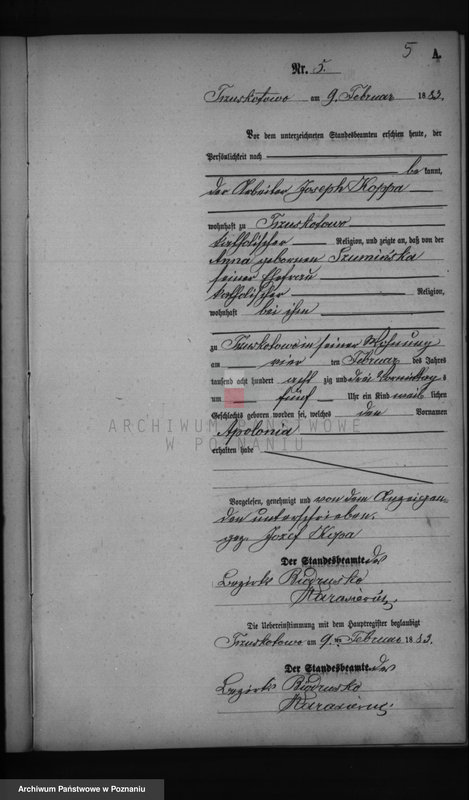 5
A.
Nr. 5.
Truskotowo am 9. Februar 1883.
Vor dem unterzeichneten Standesbeamten erschien heute, der
Persönlichkeit nach
bekannt,
der Arbeiter Joseph Koppa
wohnhaft zu Truskotowo
katholischer Religion, und zeigte an, daß von der
Anna gebornen Szumińska
seiner Ehefrau
katholischer Religion,
wohnhaft bei ihm
zu Truskotowo in seiner Wohnung
am vier ten Februar des Jahres
tausend acht hundert acht zig und drei Vormittags
um fünf Uhr ein Kind weib lichen
Geschlechts geboren worden sei, welches den Vornamen
Apolonia
erhalten habe
ARCHIWUM PAŃSTWOWE
W POZNANIU
Vorgelesen, genehmigt und von dem Anzeigen-
den unterschrieben.
gez. Jozef Kopa
Der Standesbeamte des
Bezirks Biedrusko
Die Uebereinstimmung mit dem Hauptregister beglaubigt
Truskotowo am 9ten Februar 1883.
Der Standesbeamte des
Bezirks Biedrusko
Archiwum Państwowe w Poznaniu